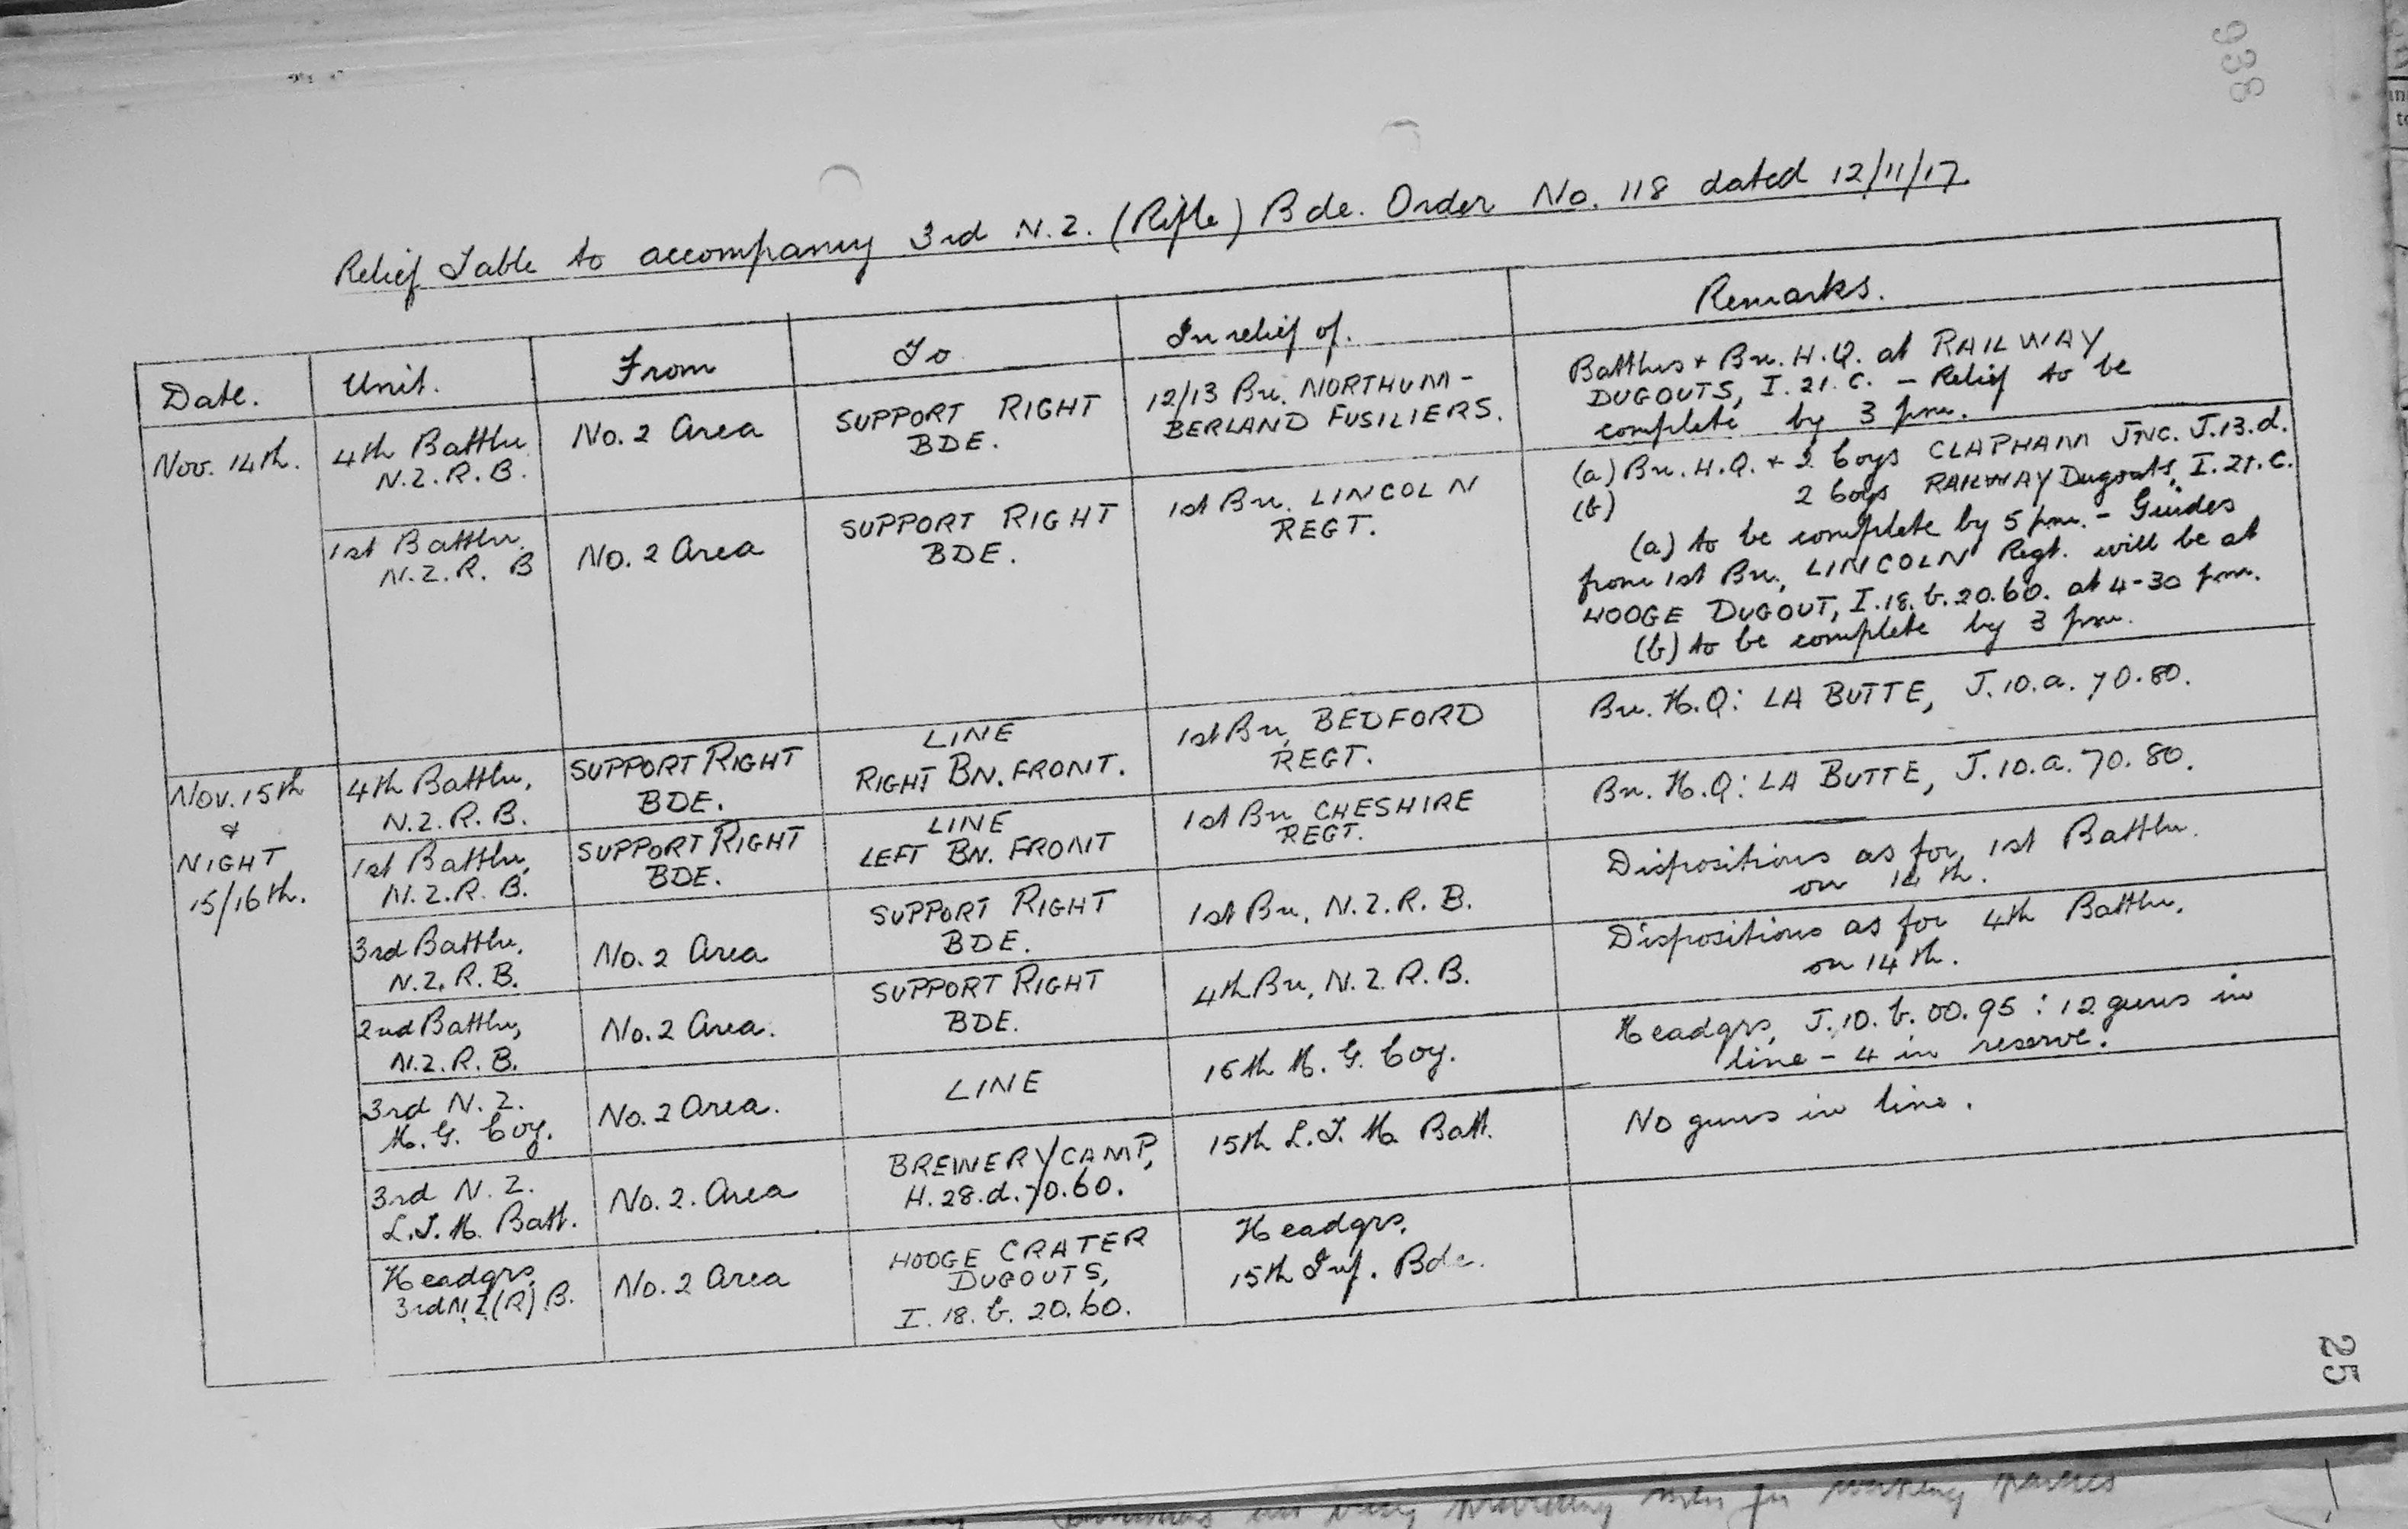 938
Relief Table to accompany 3rd N.Z. (Rifle) Bde. Order No. 118 dated 12/11/17.
Date. Unit. From To In relief of. Remarks.
Nov. 14th.
4th Battln
N.Z.R.B.
No. 2 Area
SUPPORT RIGHT
BDE.
12/13 Bn. NORTHUM-
BERLAND FUSILIERS.
Battlns + Bn. H.Q. at RAILWAY
DUGOUTS, I.21.C. - Relief to be
complete by 3 pm.
1st Battln.
N.Z.R. B
No. 2 Area
SUPPORT RIGHT
BDE.
1st Bn. LINCOLN
REGT.
(a) Bn. H.Q. + 2 Coys CLAPHAM JNC. J.13.d.
(b) 2 Coys RAILWAY Dugouts, I.21.C.
(a) to be complete by 5 pm. - Guides
from 1st Bn., LINCOLN Regt. will be at
HOOGE DUGOUT, I.18.b.20.60. at 4-30 pm.
(b) to be complete by 3 pm.
Nov. 15th
&
NIGHT
15/16th.
4th Battln,
N.Z.R.B.
SUPPORT RIGHT
BDE.
LINE
RIGHT BN. FRONT.
1st Bn, BEDFORD
REGT.
Bn. H.Q: LA BUTTE, J.10.a.70.80.
1st Battln,
N.Z.R.B.
SUPPORT RIGHT
BDE.
LINE
LEFT BN. FRONT
1st Bn CHESHIRE
REGT.
Bn. H.Q: LA BUTTE, J.10.a.70.80.
3rd Battln,
N.Z.R.B.
No. 2 Area
SUPPORT RIGHT
BDE.
1st Bn, N.Z.R.B.
Dispositions as for 1st Battln.
on 14th.
2nd Battln,
N.Z.R.B.
No. 2 Area.
SUPPORT RIGHT
BDE.
4th Bn, N.Z.R.B.
Dispositions as for 4th Battln,
on 14th.
3rd N.Z.
M.G. Coy.
No. 2 Area.
LINE
15th M.G. Coy.
Headqrs, J.10.b.00.95 : 12 guns in
line - 4 in reserve.
3rd N.Z.
L.T.M. Batt.
No. 2. Area
BREWERY CAMP,
H.28.d.70.60.
15th L.T.M. Batt.
No guns in line.
Headqrs,
3rd N.Z.(R).B.
No. 2 Area
HOOGE CRATER
DUGOUTS,
I.18.b.20.60.
Headqrs,
15th Inf. Bde.
25
men for working parties